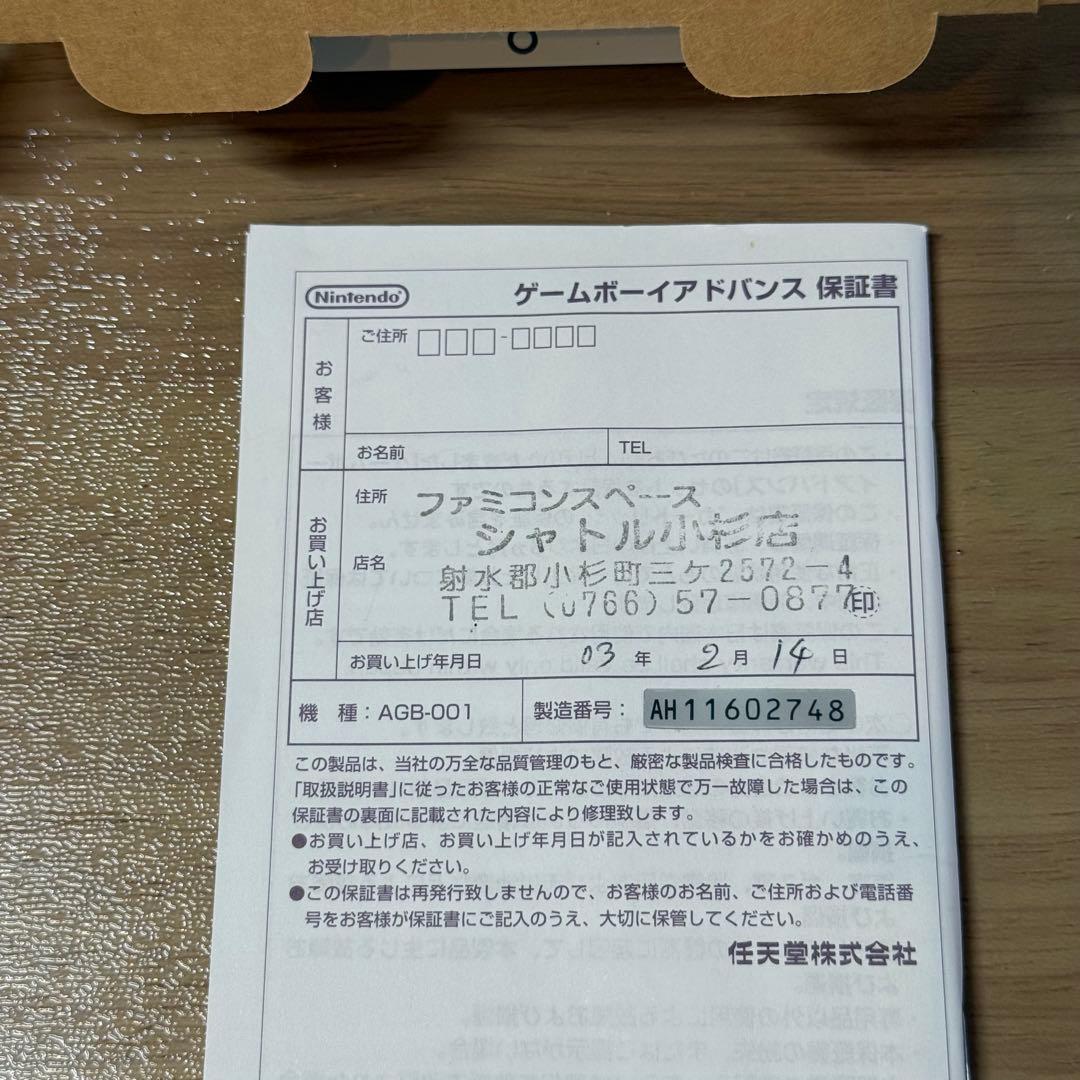 Nintendo
ゲームボーイアドバンス 保証書
お客様
ご住所 □□□-□□□□
お名前
TEL
お買い上げ店
住所
店名
ファミコンスペース
シャトル小杉店
射水郡小杉町三ケ2572-4
TEL (0766)57-0877
印
お買い上げ年月日 03 年 2 月 14 日
機 種:AGB-001
製造番号: AH11602748
この製品は、当社の万全な品質管理のもと、厳密な製品検査に合格したものです。
「取扱説明書」に従ったお客様の正常なご使用状態で万一故障した場合は、この
保証書の裏面に記載された内容により修理致します。
●お買い上げ店、お買い上げ年月日が記入されているかをお確かめのうえ、
お受け取りください。
●この保証書は再発行致しませんので、お客様のお名前、ご住所および電話番
号をお客様が保証書にご記入のうえ、大切に保管してください。
任天堂株式会社